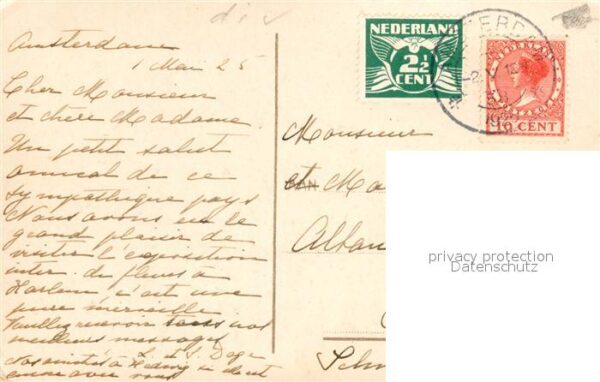 div
Amsterdam
1 Mai 25
Cher Monsieur
et chère Madame.
Un petit salut
amical de ce
sympathique pays
Nous avons eu le
grand plaisir de
visiter l'exposition
inter. de fleurs à
Harlem c'est une
pure merveille.
Veuillez recevoir tous nos
meilleurs messages
NEDERLAND
2½
CENT
NEDERLAND
10 CENT
1925
Monsieur
et Ma
Altan
Sch
privacy protection
Datenschutz